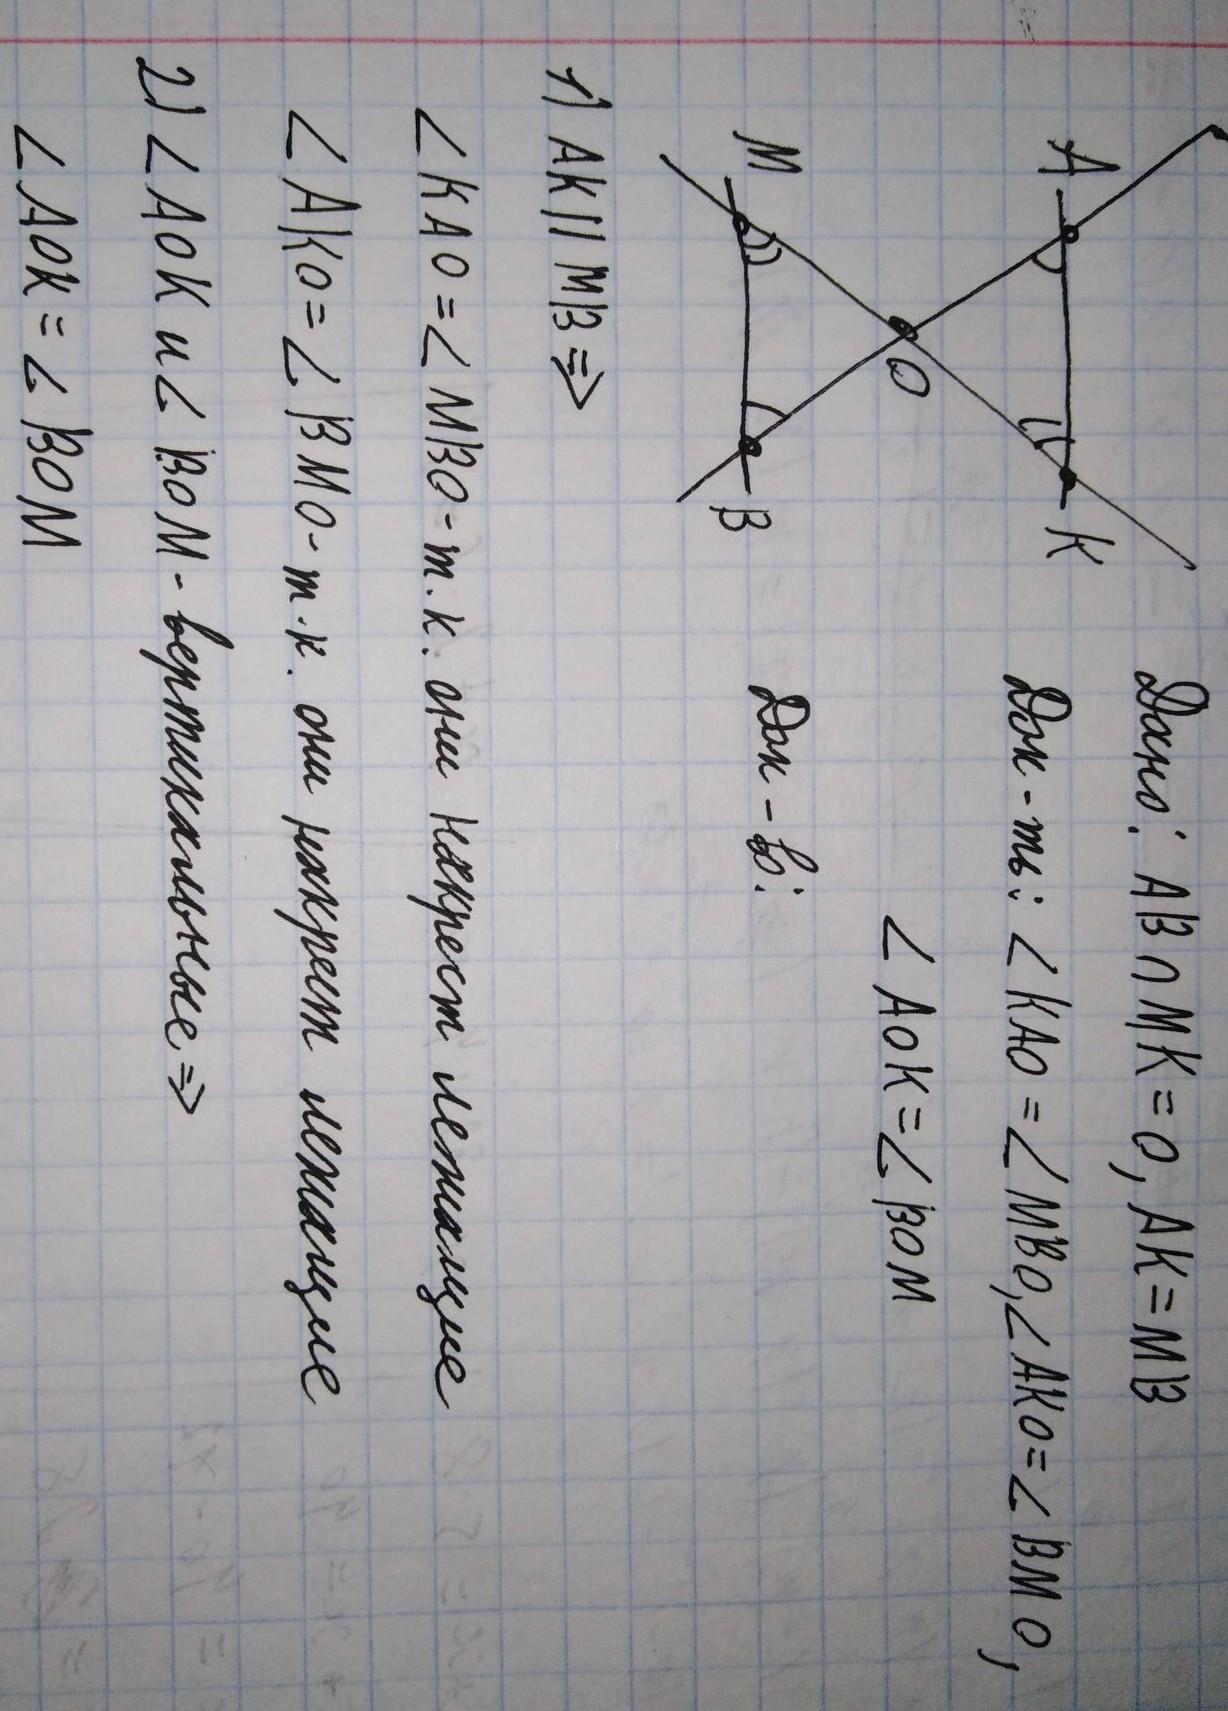 Дано: AB ∩ MK = O, AK = MB
Док-ть: ∠KAO = ∠MBO, ∠AKO = ∠BMO,
∠AOK = ∠BOM
A
K
O
M
B
Док-во:
1) AK || MB ⇒
∠KAO = ∠MBO - т.к. они накрест лежащие
∠AKO = ∠BMO - т.к. они накрест лежащие
2) ∠AOK и ∠BOM - вертикальные ⇒
∠AOK = ∠BOM